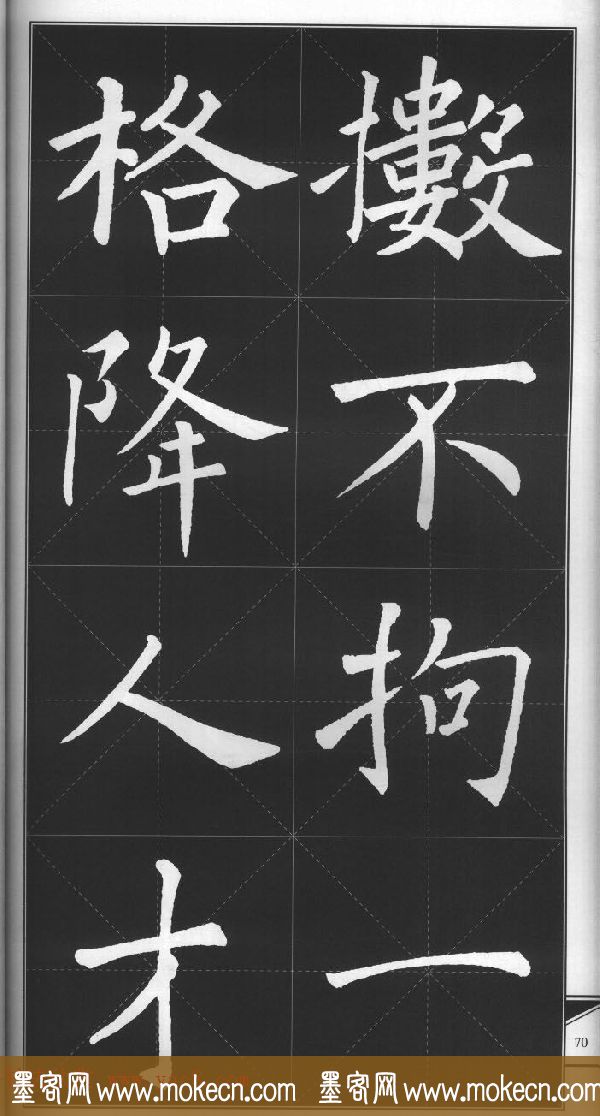 擻不拘一
格降人才
70
墨客网 www.mokecn.com 墨客网 www.mokecn.com